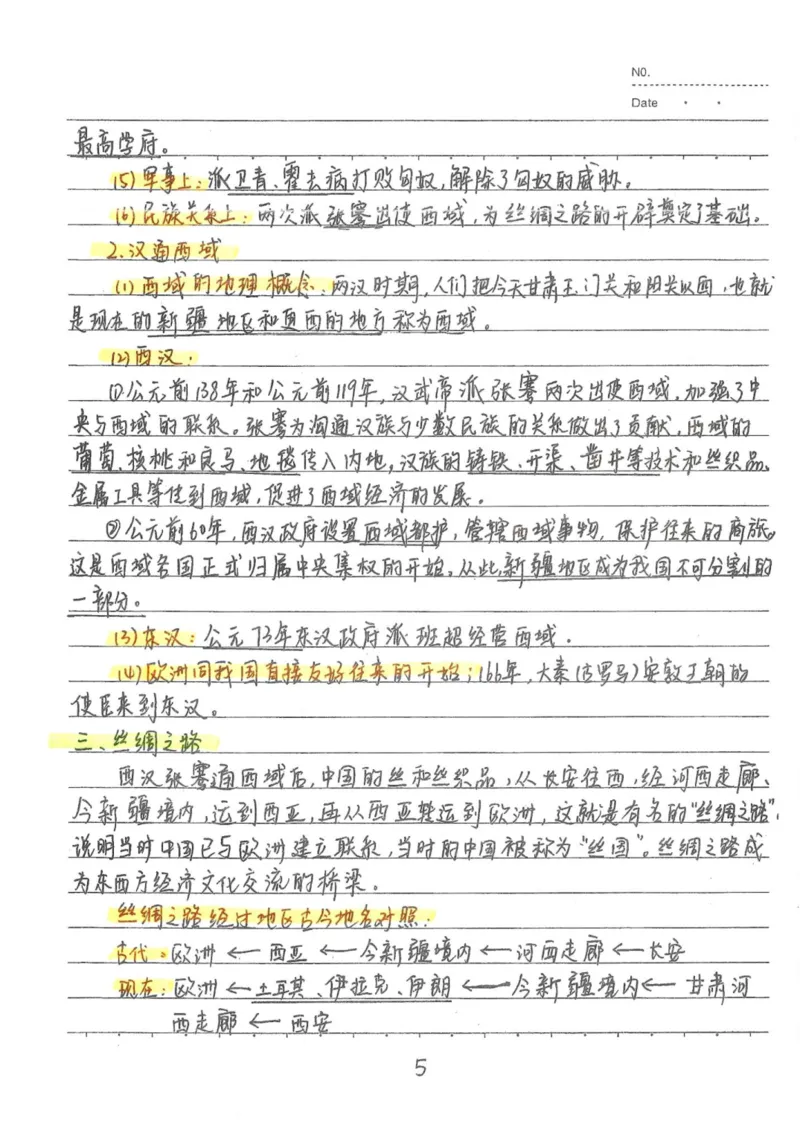 NO.
Date
最高学府。
(5)军事上:派卫青、霍去病打败匈奴,解除了匈奴的威胁。
(6)民族关系上:两次派张骞出使西域,为丝绸之路的开辟奠定了基础。
2.汉通西域
(1)西域的地理概念:两汉时期,人们把今天甘肃玉门关和阳关以西,也就
是现在的新疆地区和更西的地方称为西域。
(2)西汉:
①公元前138年和公元前119年,汉武帝派张骞两次出使西域,加强了中
央与西域的联系。张骞为沟通汉族与少数民族的关系做出了贡献,西域的
葡萄、核桃和良马、地毯传入内地,汉族的铸铁、开渠、凿井等技术和丝织品、
金属工具等传到西域,促进了西域经济的发展。
②公元前60年,西汉政府设置西域都护,管辖西域事物,保护往来的商旅。
这是西域各国正式归属中央集权的开始。从此,新疆地区成为我国不可分割的
一部分。
(3)东汉:公元73年东汉政府派班超经营西域.
(4)欧洲同我国直接友好往来的开始;166年,大秦(古罗马)安敦王朝的
使臣来到东汉。
三、丝绸之路
西汉张骞通西域后,中国的丝和丝织品,从长安往西,经河西走廊、
今新疆境内,运到西亚,再从西亚转运到欧洲,这就是有名的“丝绸之路”,
说明当时中国已与欧洲建立联系,当时的中国被称为“丝国”。丝绸之路成
为东西方经济文化交流的桥梁。
丝绸之路经过地区古今地名对照:
古代:欧洲←西亚←今新疆境内←河西走廊←长安
现在:欧洲←土耳其、伊拉克、伊朗←今新疆境内←甘肃河
西走廊←西安
5